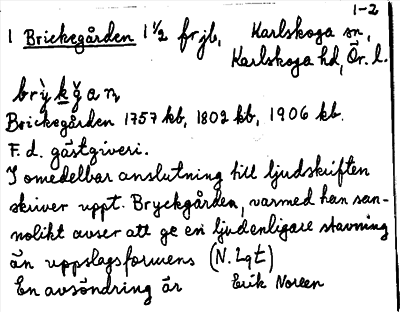 1-2
1 Brickegården 1 1/2 frjb, Karlskoga sn,
Karlskoga hd, Ör. l.
brỳkgan
Brickegården 1757 kb, 1802 kb, 1906 kb.
F. d. gästgiveri.
I omedelbar anslutning till ljudskriften
skriver uppt. Bryckgården, varmed han san-
nolikt avser att ge en ljudenligare stavning
än uppslagsformens (N. Lgt)
En avsöndring är Erik Noreen